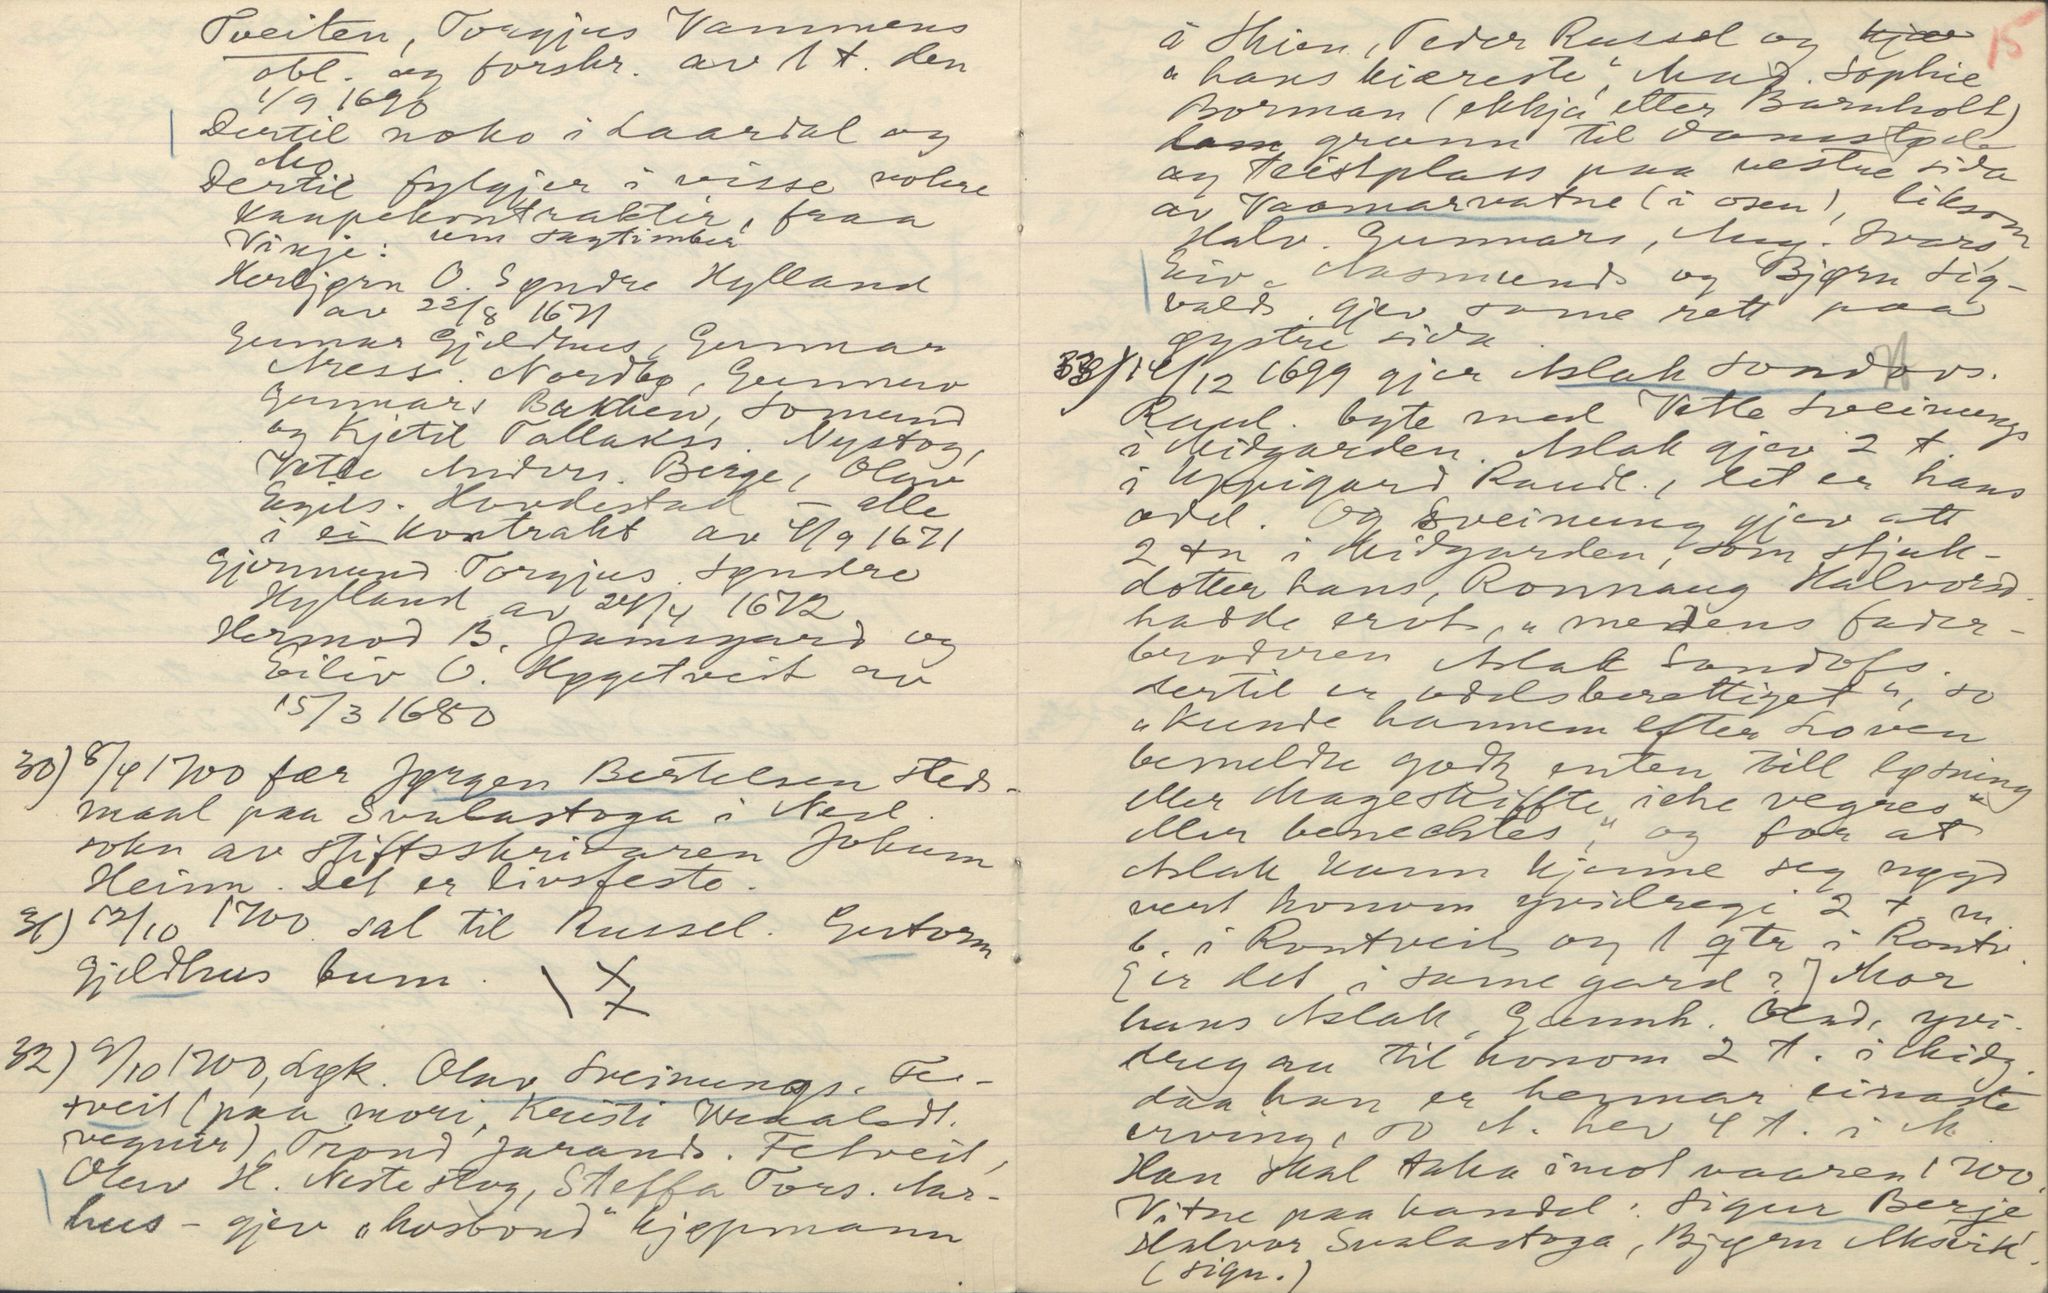 Tveiten, Torgjus Vammens
obl. og forskr. av 1 t. den
1/9 1690
Dertil noko i Laardal og
Mo
Dertil fylgjer i visse nokre
Kaupekontraktir, fraa
Vinje: um sagtimber
Herbjørn O. Syndre Hylland
av 22/8 1671
Gunnar Gjeldhus, Gunnar
Aress. Nordbø, Gunnuv
Gunnars Bakken, Somund
og Kjetil Tallakss. Nystog,
Vetle Anders. Berge, Olav
Eigils. Hovdestad – alle
i ei Kontrakt av 4/9 1671
Gjermund Torgjus. Syndre
Hylland av 24/4 1672
Hermod B. Jamsgard og
Eiliv O. Høgetveit av
15/3 1680
30) 8/4 1700 fær Jørgen Bertelsen steds-
maal paa Svalastoga i Nesl.
sokn av stiftsskrivaren Johum
Heim. Det er livsfeste.
31) 12/10 1700 sal til Russel. Guttorm
Gjeldhus bum.
32) 9/10 1700, Lgk. Olav Sveinungs. Fe-
tveit (paa mori, Kristi
vegnir), Trond Jarands. Fetveit,
Olav H. Nestestog, Steffa Tors. Aar-
hus – gjev "husbond" kjøpmann
15
i Skien, Peder Russel og kjær
"hans kiæreste", Mad. Sophie
Borman (ekkja etter Barnholt)
grunn til damstøde
og teistplass paa vestre sida
av Vaamarvatne (i osen), liksom
Halv. Gunnars, Aug. Ivars,
Eiv. Aasmunds og Bjørn Sig-
valds. gjev same rett paa
øystre sida.
33) 14/12 1699 gjer Aslak Sondovs.
Raul. byte med Vetle Sveinungs
i Midgarden. Aslak gjev 2 t.
i Uppigard Raul., det er hans
odel. Og Sveinung gjev att
2 tn i Midgarden, som stjuk-
dotter hans, Ronnaug Halvorsd.
hadde ervt, "medens fader-
broderen Aslak Sondofs.
dertil er odelsberettiget", so
"kunde hannem efter Loven
bemeldte godtz enten till løsning
eller Mageskiffte iche vegres"
eller benechtes," og for at
Aslak kann kjenne seg nøgd
vert honom yvidregi 2 t. m.
b. i Rontveit og 1 qtr i Rontv.
[er det i same gard?] Mor
hans Aslak, Gunnh. Olavd. yvi-
dreg au til honom 2 t. i Midg.
daa han er hennar einaste
erving, so A. hev 4 t. i M.
Han skal taka imot vaaren 1700.
Vitne paa handel: Sigur Berje
Halvor Svalastoga, Bjørn Aksvik.
(sign.)